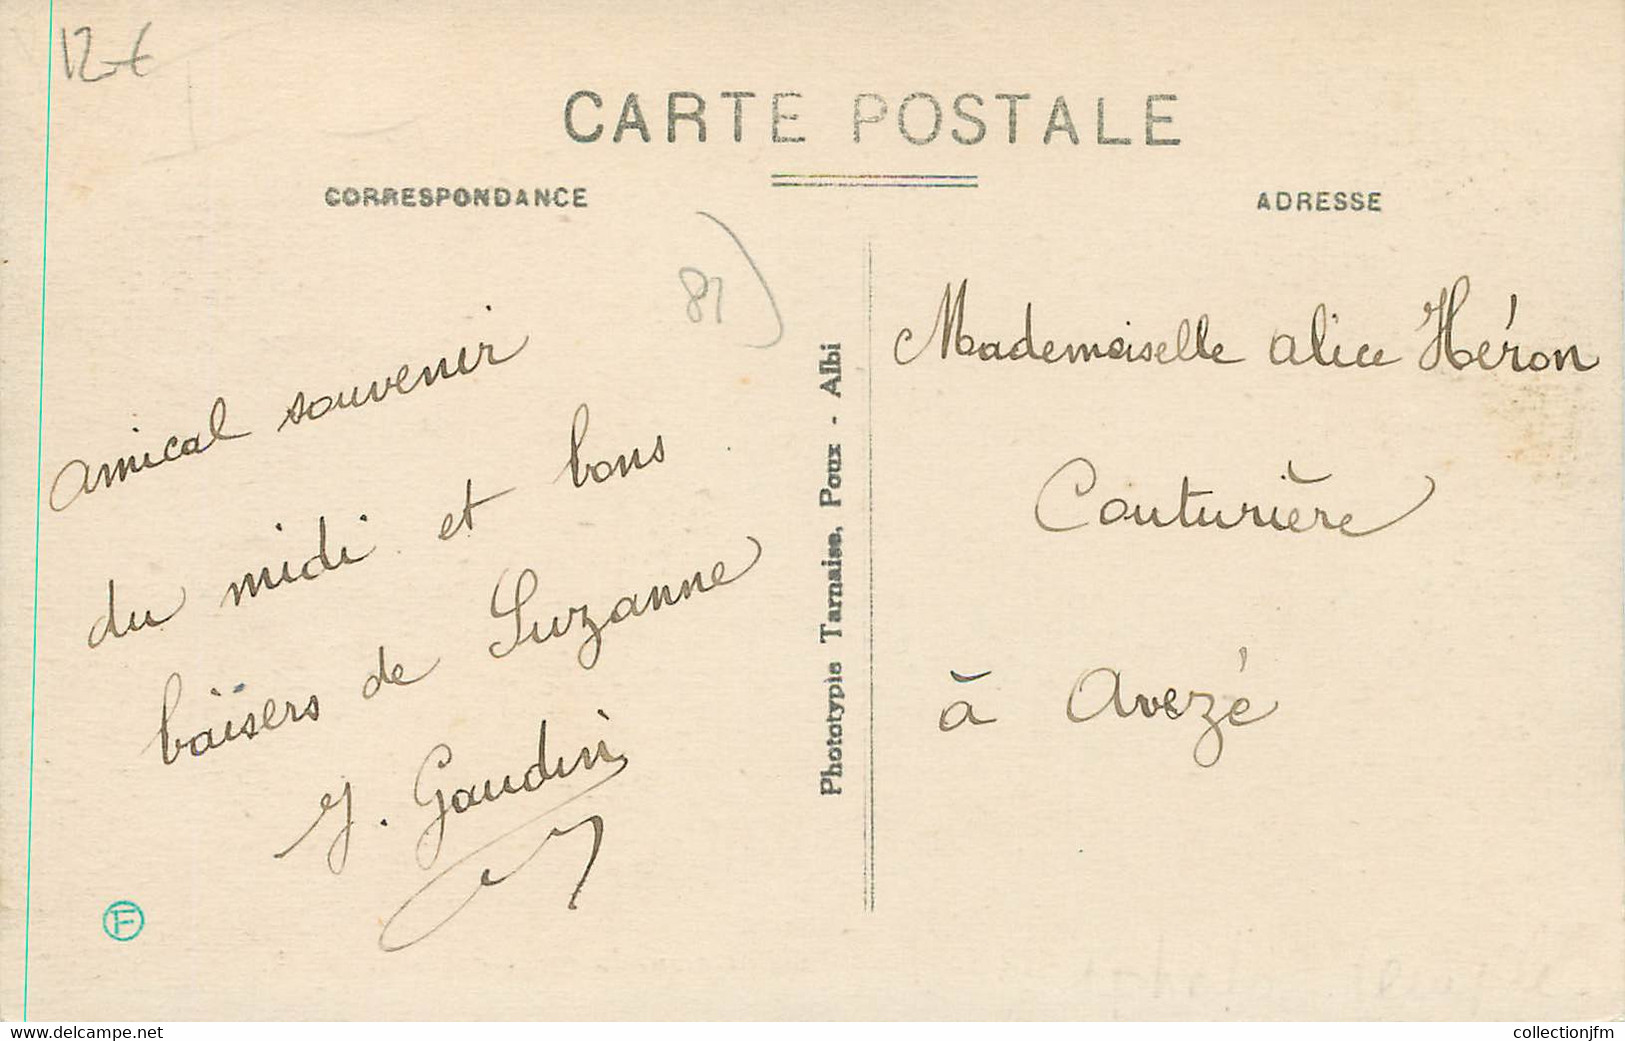 12€
CARTE POSTALE
CORRESPONDANCE
ADRESSE
81
amical souvenir
du midi et bons
baïsers de Suzanne
J. Gaudin
Phototypie Tarnaise, Poux - Albi
Mademoiselle alice Héron
Couturière
à Avezé
F
www.delcampe.net
collectionjfm